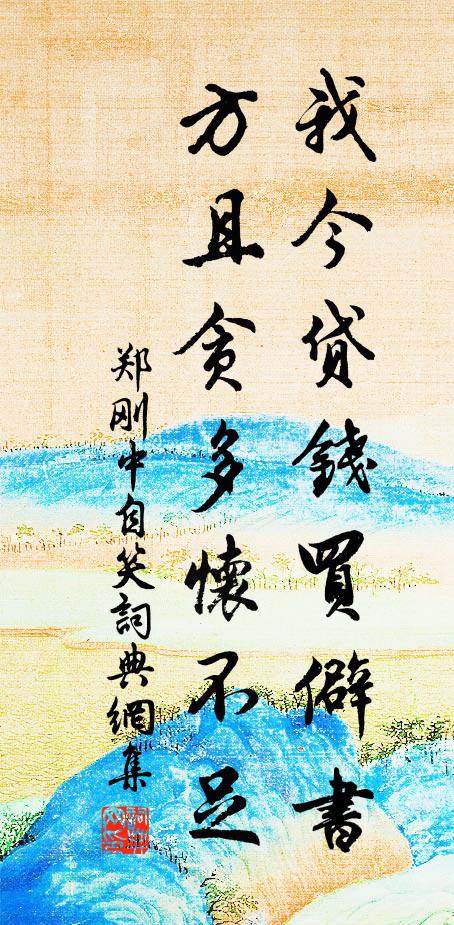 我今貸錢買僻書
方且貪多懷不足
郑刚中自笑詞典網集